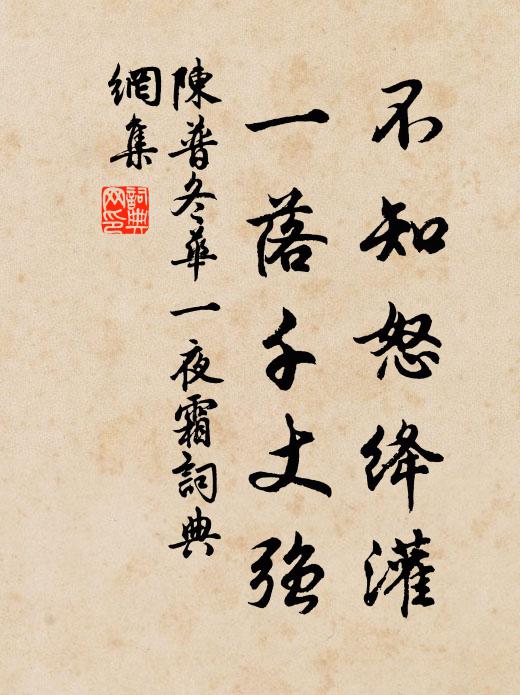 不知怒绛灌
一落千丈强
陳普冬華一夜霜詞典
網集
詞典
网印